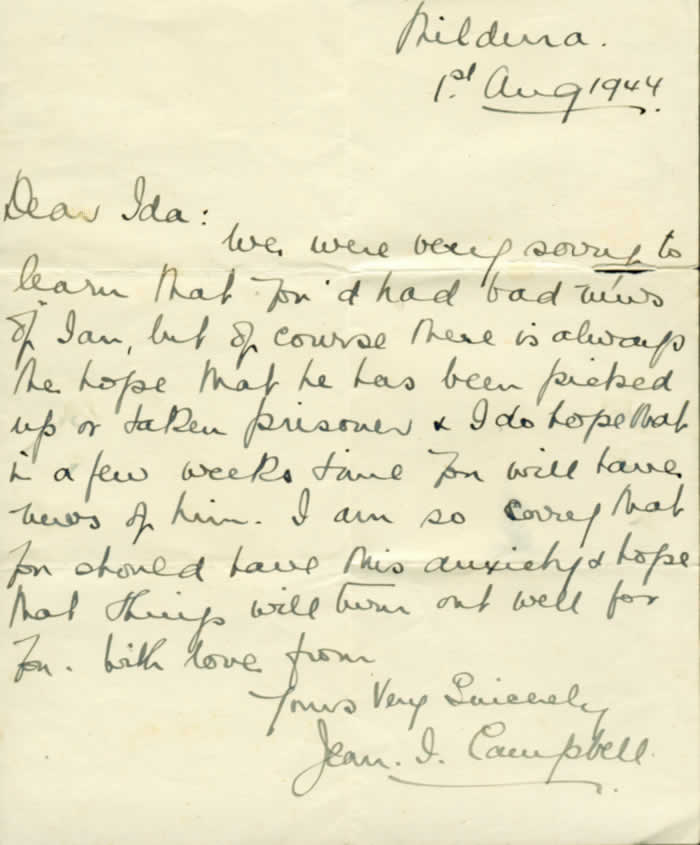 Mildura.
1st Aug 1944.
Dear Ida:
We were very sorry to
learn that you'd had bad news
of Ian, but of course there is always
the hope that he has been picked
up or taken prisoner & I do hope that
in a few weeks time you will have
news of him. I am so sorry that
you should have this anxiety & hope
that things will turn out well for
you. With love from
Yours Very Sincerely
Jean. I. Campbell.